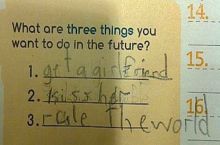 What are three things you
want to do in the future?
1. get a girlfriend
2. kiss her
3. rule theworld
14.
15.
16.